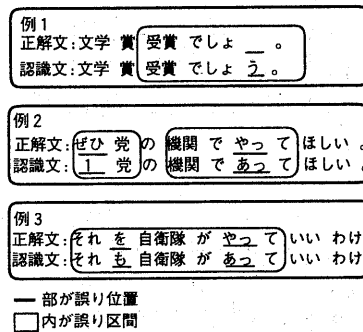 例1
正解文:文学 賞 受賞 でしょ _ 。
認識文:文学 賞 受賞 でしょ う 。
例2
正解文:ぜひ 党 の 機関 で やっ て ほしい 。
認識文:1 党 の 機関 で あっ て ほしい 。
例3
正解文:それ を 自衛隊 が やっ て いい わけ
認識文:それ も 自衛隊 が あっ て いい わけ
― 部が誤り位置
□内が誤り区間